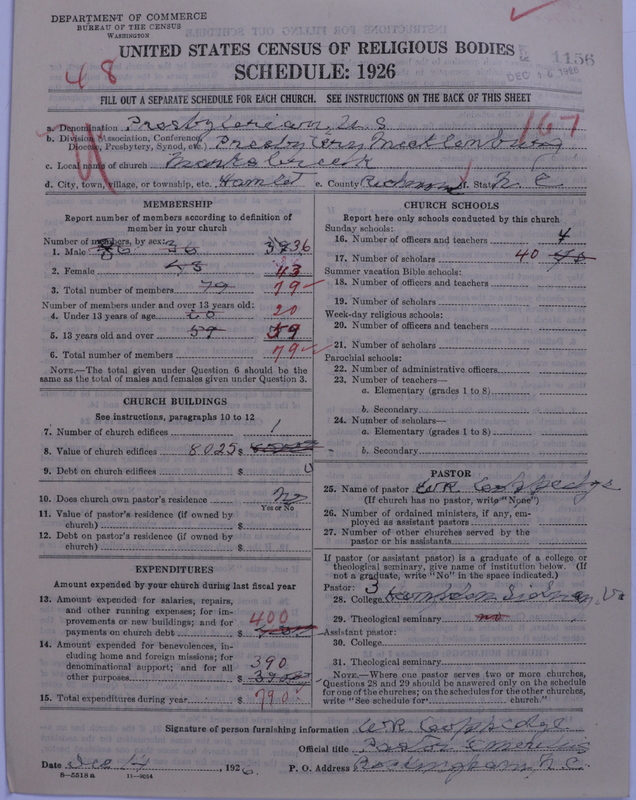 DEPARTMENT OF COMMERCE
BUREAU OF THE CENSUS
WASHINGTON
UNITED STATES CENSUS OF RELIGIOUS BODIES
SCHEDULE: 1926
48
1156
DEC 16 1926
FILL OUT A SEPARATE SCHEDULE FOR EACH CHURCH. SEE INSTRUCTIONS ON THE BACK OF THIS SHEET
a. Denomination Presbyterian, U.S.
167
b. Division (Association, Conference, Diocese, Presbytery, Synod, etc.) Presbytery Mecklenburg
c. Local name of church Marks Creek
d. City, town, village, or township, etc. Hamlet e. County Richmond f. State N. C.
MEMBERSHIP
Report number of members according to definition of member in your church
Number of members, by sex:
1. Male 36 36
2. Female 43 43
3. Total number of members 79 79
Number of members under and over 13 years old:
4. Under 13 years of age 20 20
5. 13 years old and over 59 59
6. Total number of members 79
NOTE.—The total given under Question 6 should be the same as the total of males and females given under Question 3.
CHURCH BUILDINGS
See instructions, paragraphs 10 to 12
7. Number of church edifices 1
8. Value of church edifices 8025 $
9. Debt on church edifices $ 0
10. Does church own pastor's residence No
Yes or No
11. Value of pastor's residence (if owned by church) $
12. Debt on pastor's residence (if owned by church) $
EXPENDITURES
Amount expended by your church during last fiscal year
13. Amount expended for salaries, repairs, and other running expenses; for improvements or new buildings; and for payments on church debt 400 $
14. Amount expended for benevolences, including home and foreign missions; for denominational support; and for all other purposes 390 $ 390
15. Total expenditures during year $ 790
CHURCH SCHOOLS
Report here only schools conducted by this church
Sunday schools:
16. Number of officers and teachers 4
17. Number of scholars 40
Summer vacation Bible schools:
18. Number of officers and teachers
19. Number of scholars
Week-day religious schools:
20. Number of officers and teachers
21. Number of scholars
Parochial schools:
22. Number of administrative officers
23. Number of teachers—
a. Elementary (grades 1 to 8)
b. Secondary
24. Number of scholars—
a. Elementary (grades 1 to 8)
b. Secondary
PASTOR
25. Name of pastor W R Coppedge
(If church has no pastor, write "None")
26. Number of ordained ministers, if any, employed as assistant pastors
27. Number of other churches served by the pastor or his assistants 3
If pastor (or assistant pastor) is a graduate of a college or theological seminary, give name of institution below. (If not a graduate, write "No" in the space indicated.)
Pastor:
28. College Hampden Sidney, Va
29. Theological seminary no
Assistant pastor:
30. College
31. Theological seminary
NOTE.—Where one pastor serves two or more churches, Questions 28 and 29 should be answered only on the schedule for one of the churches; on the schedules for the other churches, write "See schedule for church."
Signature of person furnishing information W R Coppedge
Official title Pastor Emeritus
Date Dec 14, 1926. P. O. Address Rockingham, N.C.
8—5518 a 11—9014